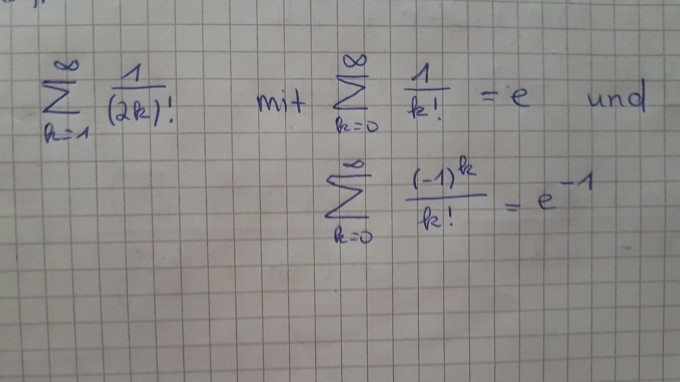 ∑_{k=1}^{∞} 1/(2k)! mit ∑_{k=0}^{∞} 1/k! = e und
∑_{k=0}^{∞} (-1)^k/k! = e^{-1}